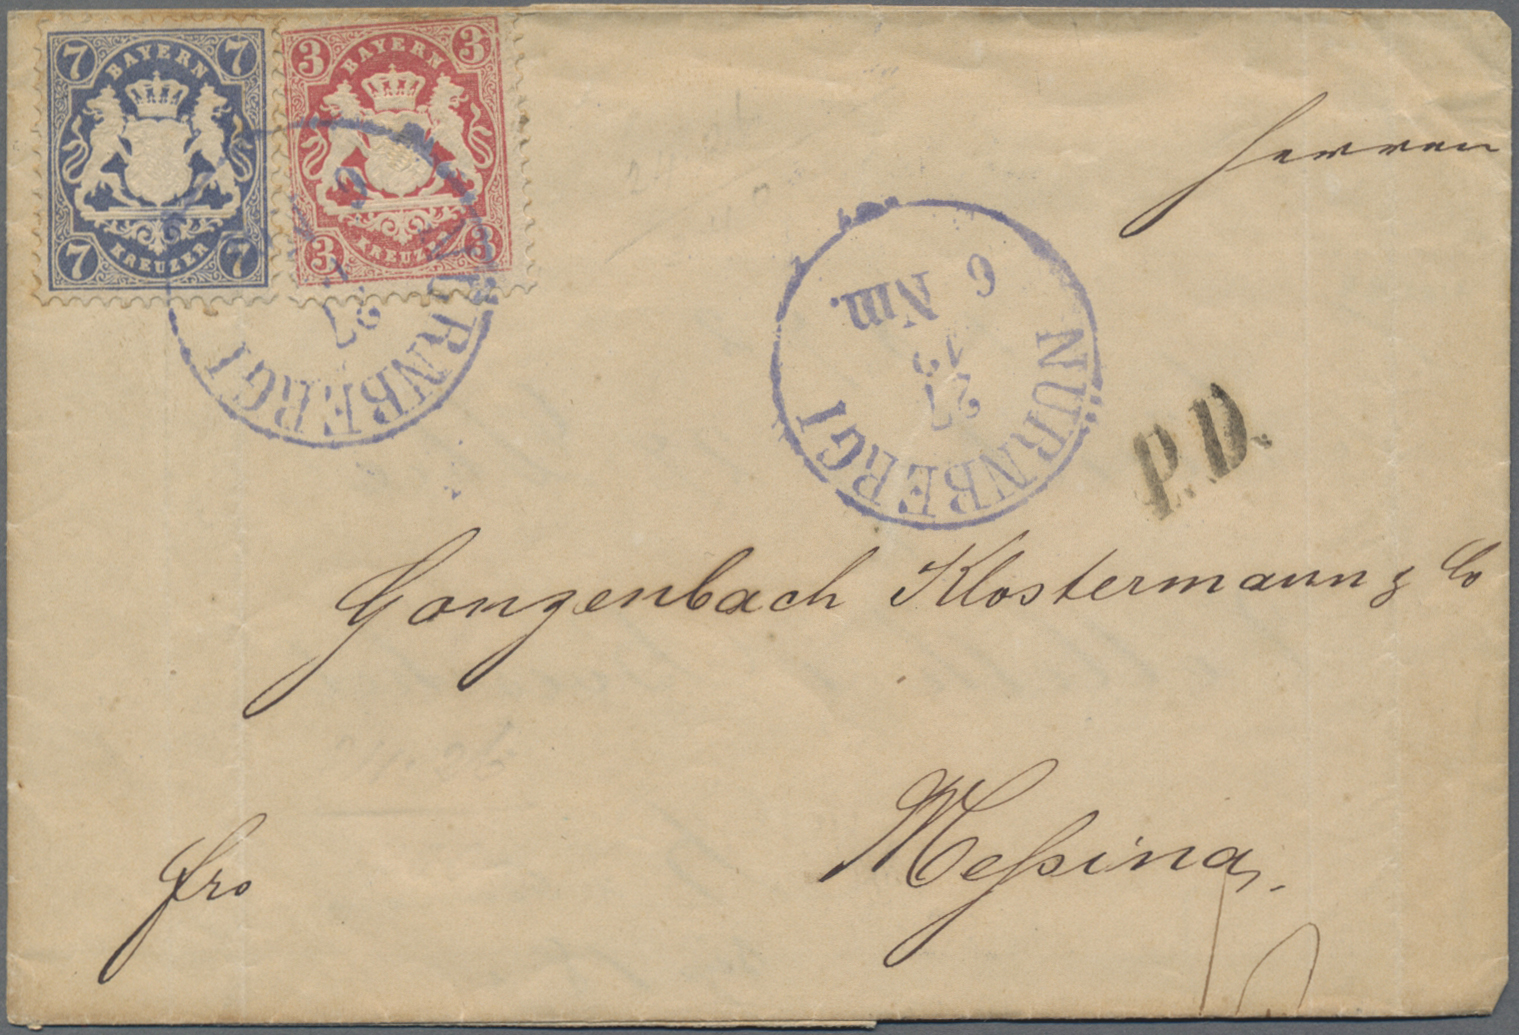 7 7
BAYERN
KREUZER
7 7
3 3
BAYERN
KREUZER
3 3
NÜRNBERG I
27
NÜRNBERG I
27
6 Nm.
P.D.
Herren
Gonzenbach Klostermann & Co
Meßina
fro